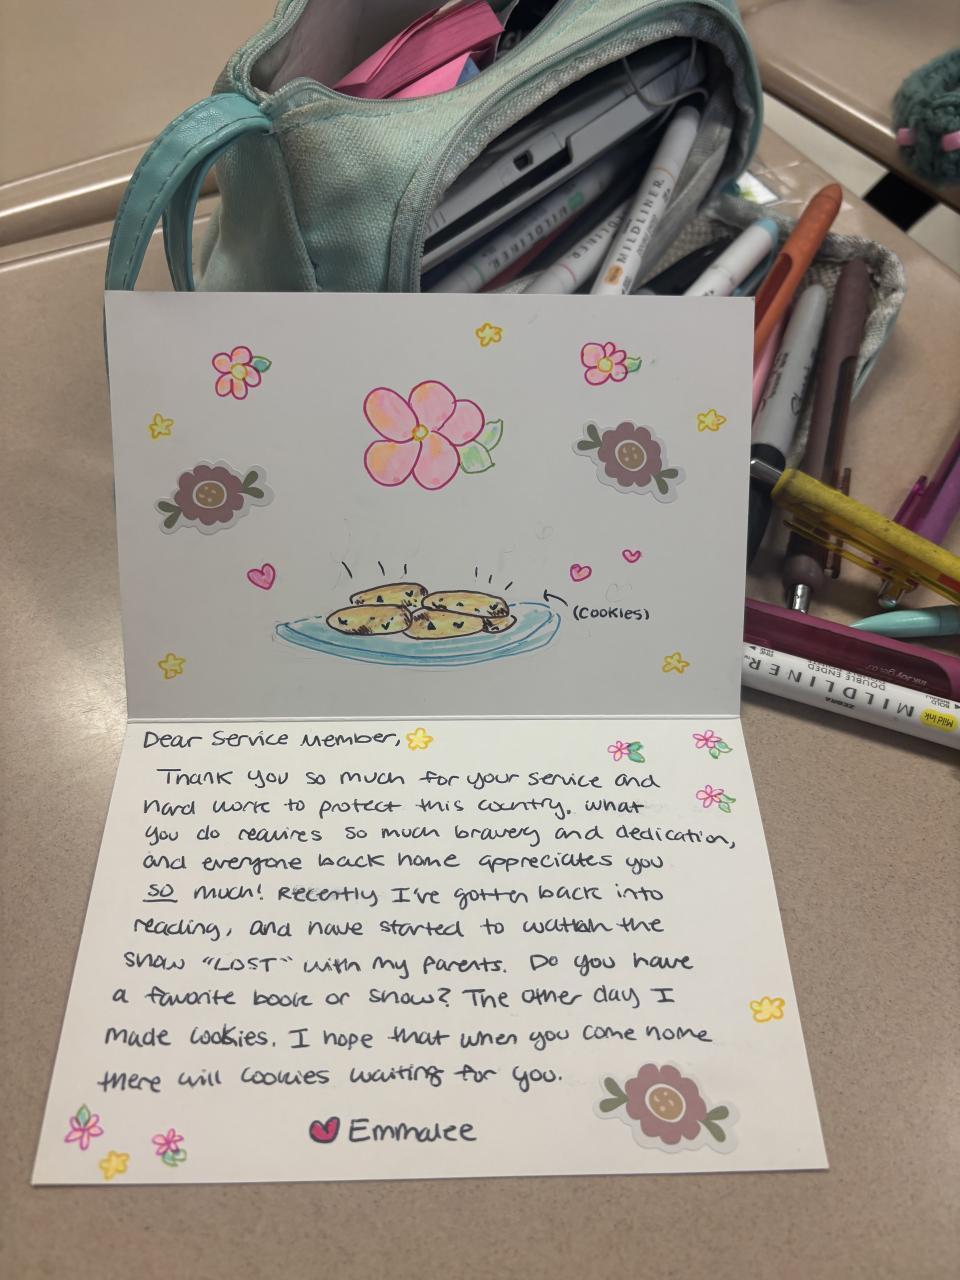 MILDLINER
MILDLINER
MILDLINER
(Cookies)
MILDLINER
DOUBLE ENDED
ZEBRA
Mild ink
Dear Service Member,
Thank you so much for your service and
hard work to protect this country. What
you do requires so much bravery and dedication,
and everyone back home appreciates you
so much! Recently I've gotten back into
reading, and have started to watch the
show "LOST" with my parents. Do you have
a favorite book or show? The other day I
made cookies. I hope that when you come home
there will cookies waiting for you.
Emmalee